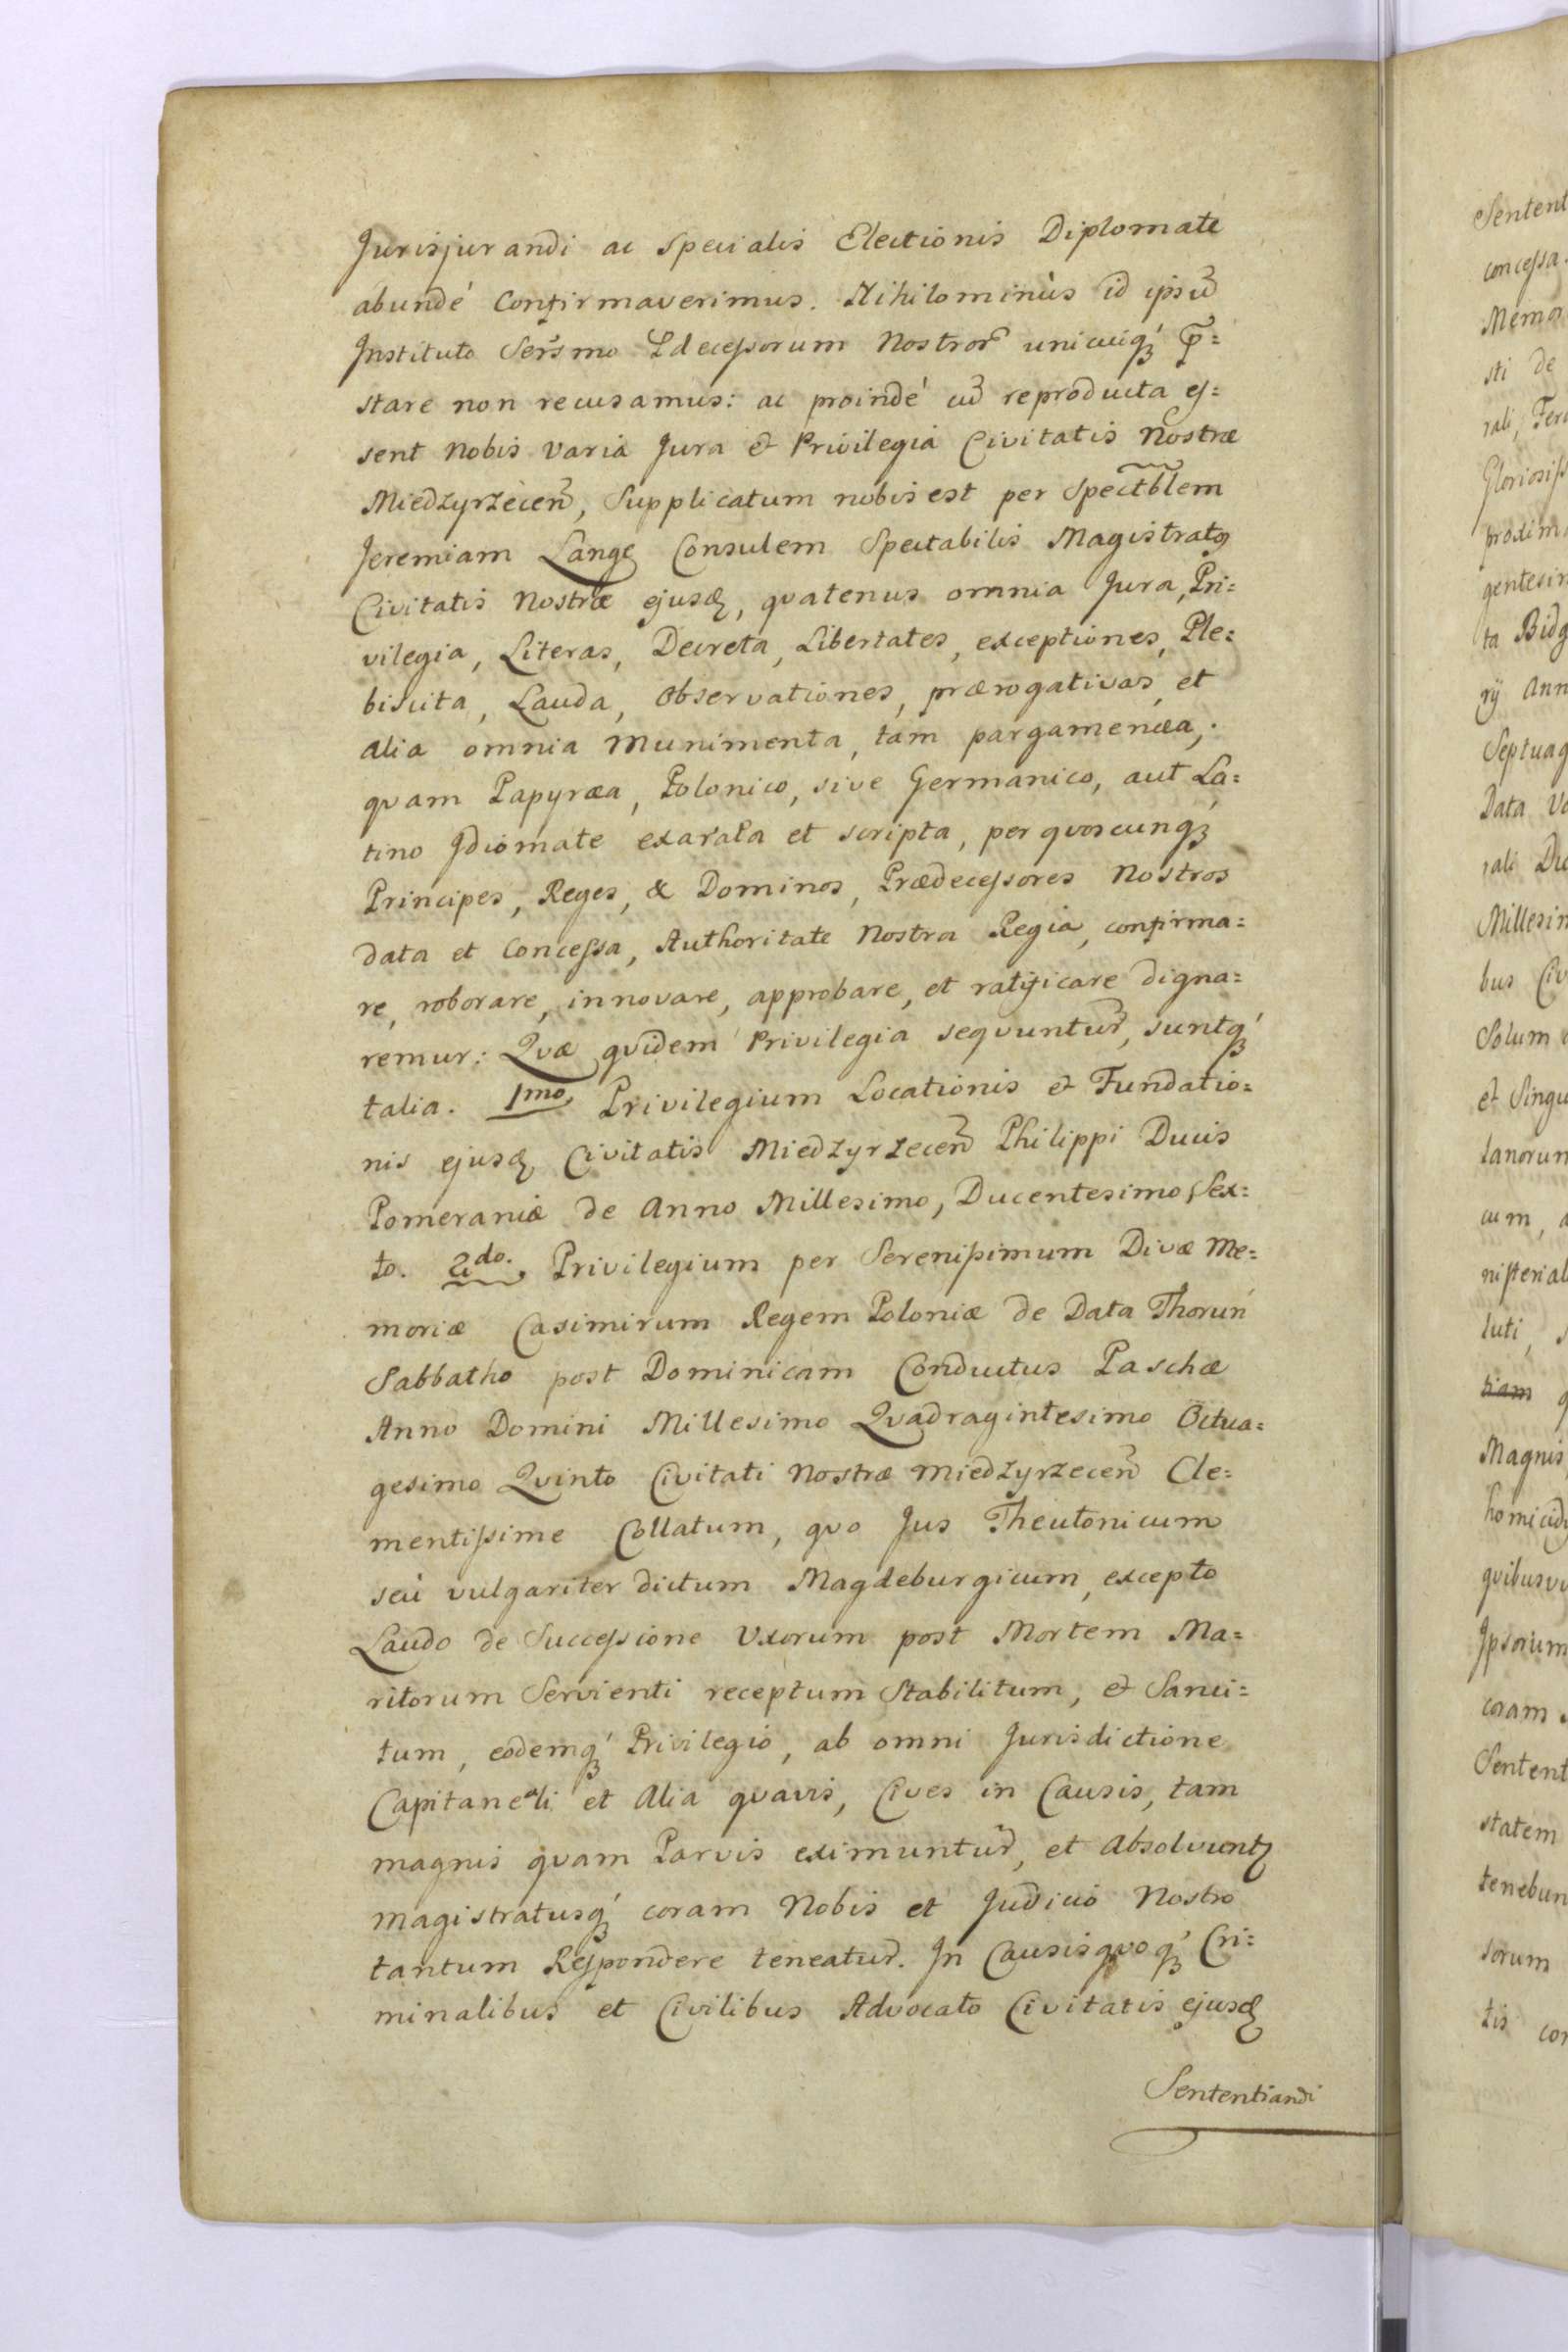 Jurisjurandi ac specialis Electionis Diplomate
abundé Confirmaverimus. Nihilominùs id ipsu͂
Instituto Sers̃mo Pdecessorum Nostror͂ unicuiqꝫ p̃=
stare non recusamus: ac proindé cu͂ reproducta es=
sent Nobis Varia Jura & Privilegia Civitatis Nostræ
Miedzyrzecen͂, Supplicatum nobis est per Spect͂blem
Jeremiam Lange Consulem Spectabilis Magistratꝯ
Civitatis Nostræ ejusd, quatenus omnia Jura, Pri=
vilegia, Literas, Decreta, Libertates, exceptiones, Ple=
biscita, Lauda, Observationes, prærogativas, et
alia omnia Munimenta, tam pargamenæa,
quam Papyræa, Polonico, sive Germanico, aut La=
tino Idiomate exarata et scripta, per quoscunqꝫ
Principes, Reges, & Dominos, Prædecessores Nostros
data et Concessa, Authoritate Nostra Regia, confirma=
re, roborare, innovare, approbare, et ratificare digna=
remur: Qvæ qvidem Privilegia seqvuntur͂, suntqꝫ
talia. 1mo, Privilegium Locationis & Fundatio=
nis ejusd Civitatis Miedzyrzecen͂ Philippi Ducis
Pomeraniæ de Anno Millesimo, Ducentesimo, Sex=
to. 2do. Privilegium per Serenissimum Divæ Me=
moriæ Casimirum Regem Poloniæ de Data Thoruń
Sabbatho post Dominicam Conductus Paschæ
Anno Domini Millesimo Qvadragintesimo Octua=
gesimo Qvinto Civitati Nostræ Miedzyrzecen͂ Cle=
mentissime Collatum, qvo Jus Theutonicum
seù vulgariter dictum Magdeburgicum, excepto
Laudo de Successione Uxorum post Mortem Ma=
ritorum Servienti receptum Stabilitum, & Sanci=
tum, eodemqꝫ Privilegio, ab omni Jurisdictione
Capitaneali et Alia qvavis, Cives in Causis, tam
magnis qvam Parvis eximuntur͂, et Absolvuntꝫ
magistratusqꝫ coram Nobis et Judicio Nostro
tantum Respondere teneatur͂. In Causis qvoqꝫ Cri=
minalibus et Civilibus Advocato Civitatis ejusd
Sententiandi
Sentent
concessa
Memor
sti de
rali, Fer
Gloriosiss
proxim
gentesim
ta Bidg
rÿ Ann
Septuag
Data
rali Du
Millesim
bus Civ
Solum
et Singu
tanorum
cum,
nisterial
luti,
tiam
Magnis
homicid
qvibusv
Ipsorum
coram
Sentent
statem
tenebun
sorum
tis cor